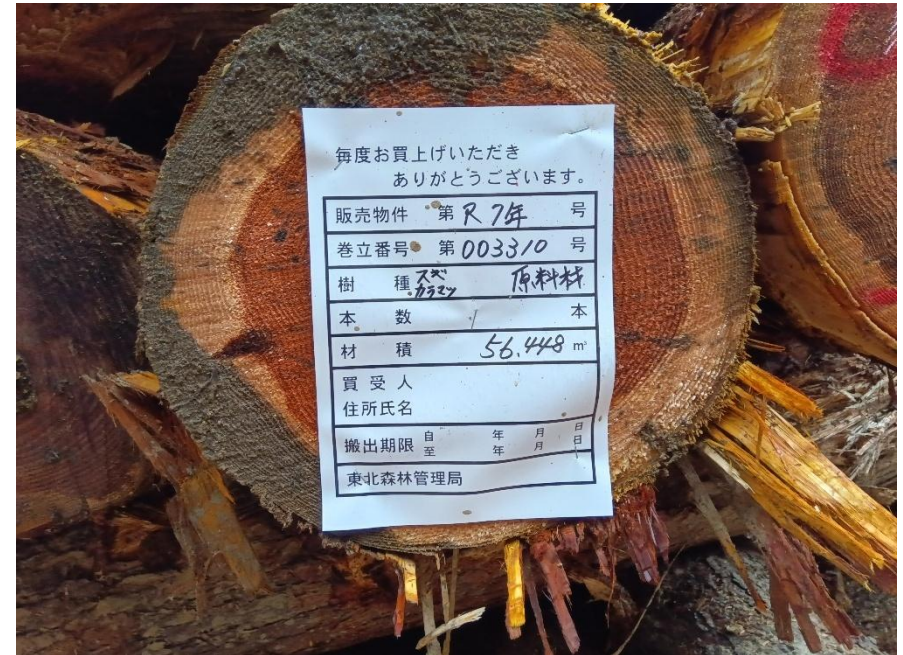 毎度お買上げいただき
ありがとうございます。
販売物件 第 R7年 号
巻立番号 第 003310 号
樹 種 スギ カラマツ 原料材
本 数 / 本
材 積 56.448 m³
買受人
住所氏名
搬出期限 自 年 月 日
至 年 月 日
東北森林管理局